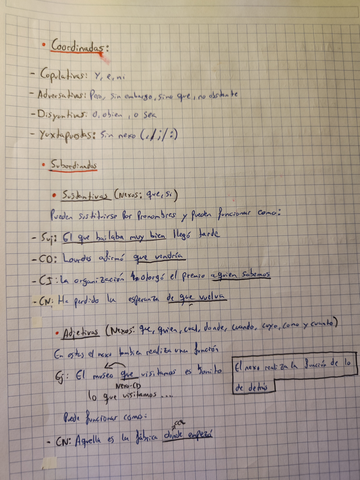 • Coordinadas:
- Copulativas: Y, e, ni
- Adversativas: Pero, sin embargo, sino que, no obstante
- Disyuntivas: O, o bien, o sea
- Yuxtapuestas: Sin nexo (, / ; / :)
• Subordinadas
• Sustantivas (Nexos: que, si)
Pueden sustituirse por Pronombres y Pueden funcionar como:
- Suj: El que bailaba muy bien llegó tarde
- CO: Lourdes afirmó que vendría
- CI: La organización otorgó el premio a quien sabemos
- CN: Ha perdido la esperanza de que vuelva
• Adjetivas (Nexos: que, quien, cual, donde, cuando, cuyo, como y cuanto)
En estas el nexo tambien realiza una función
Ej: El museo que visitamos es bonito
Nexo-CD
lo que visitamos ....
El nexo realiza la función de lo
de detrás
Puede funcionar como:
CCL
- CN: Aquella es la fábrica donde empezó